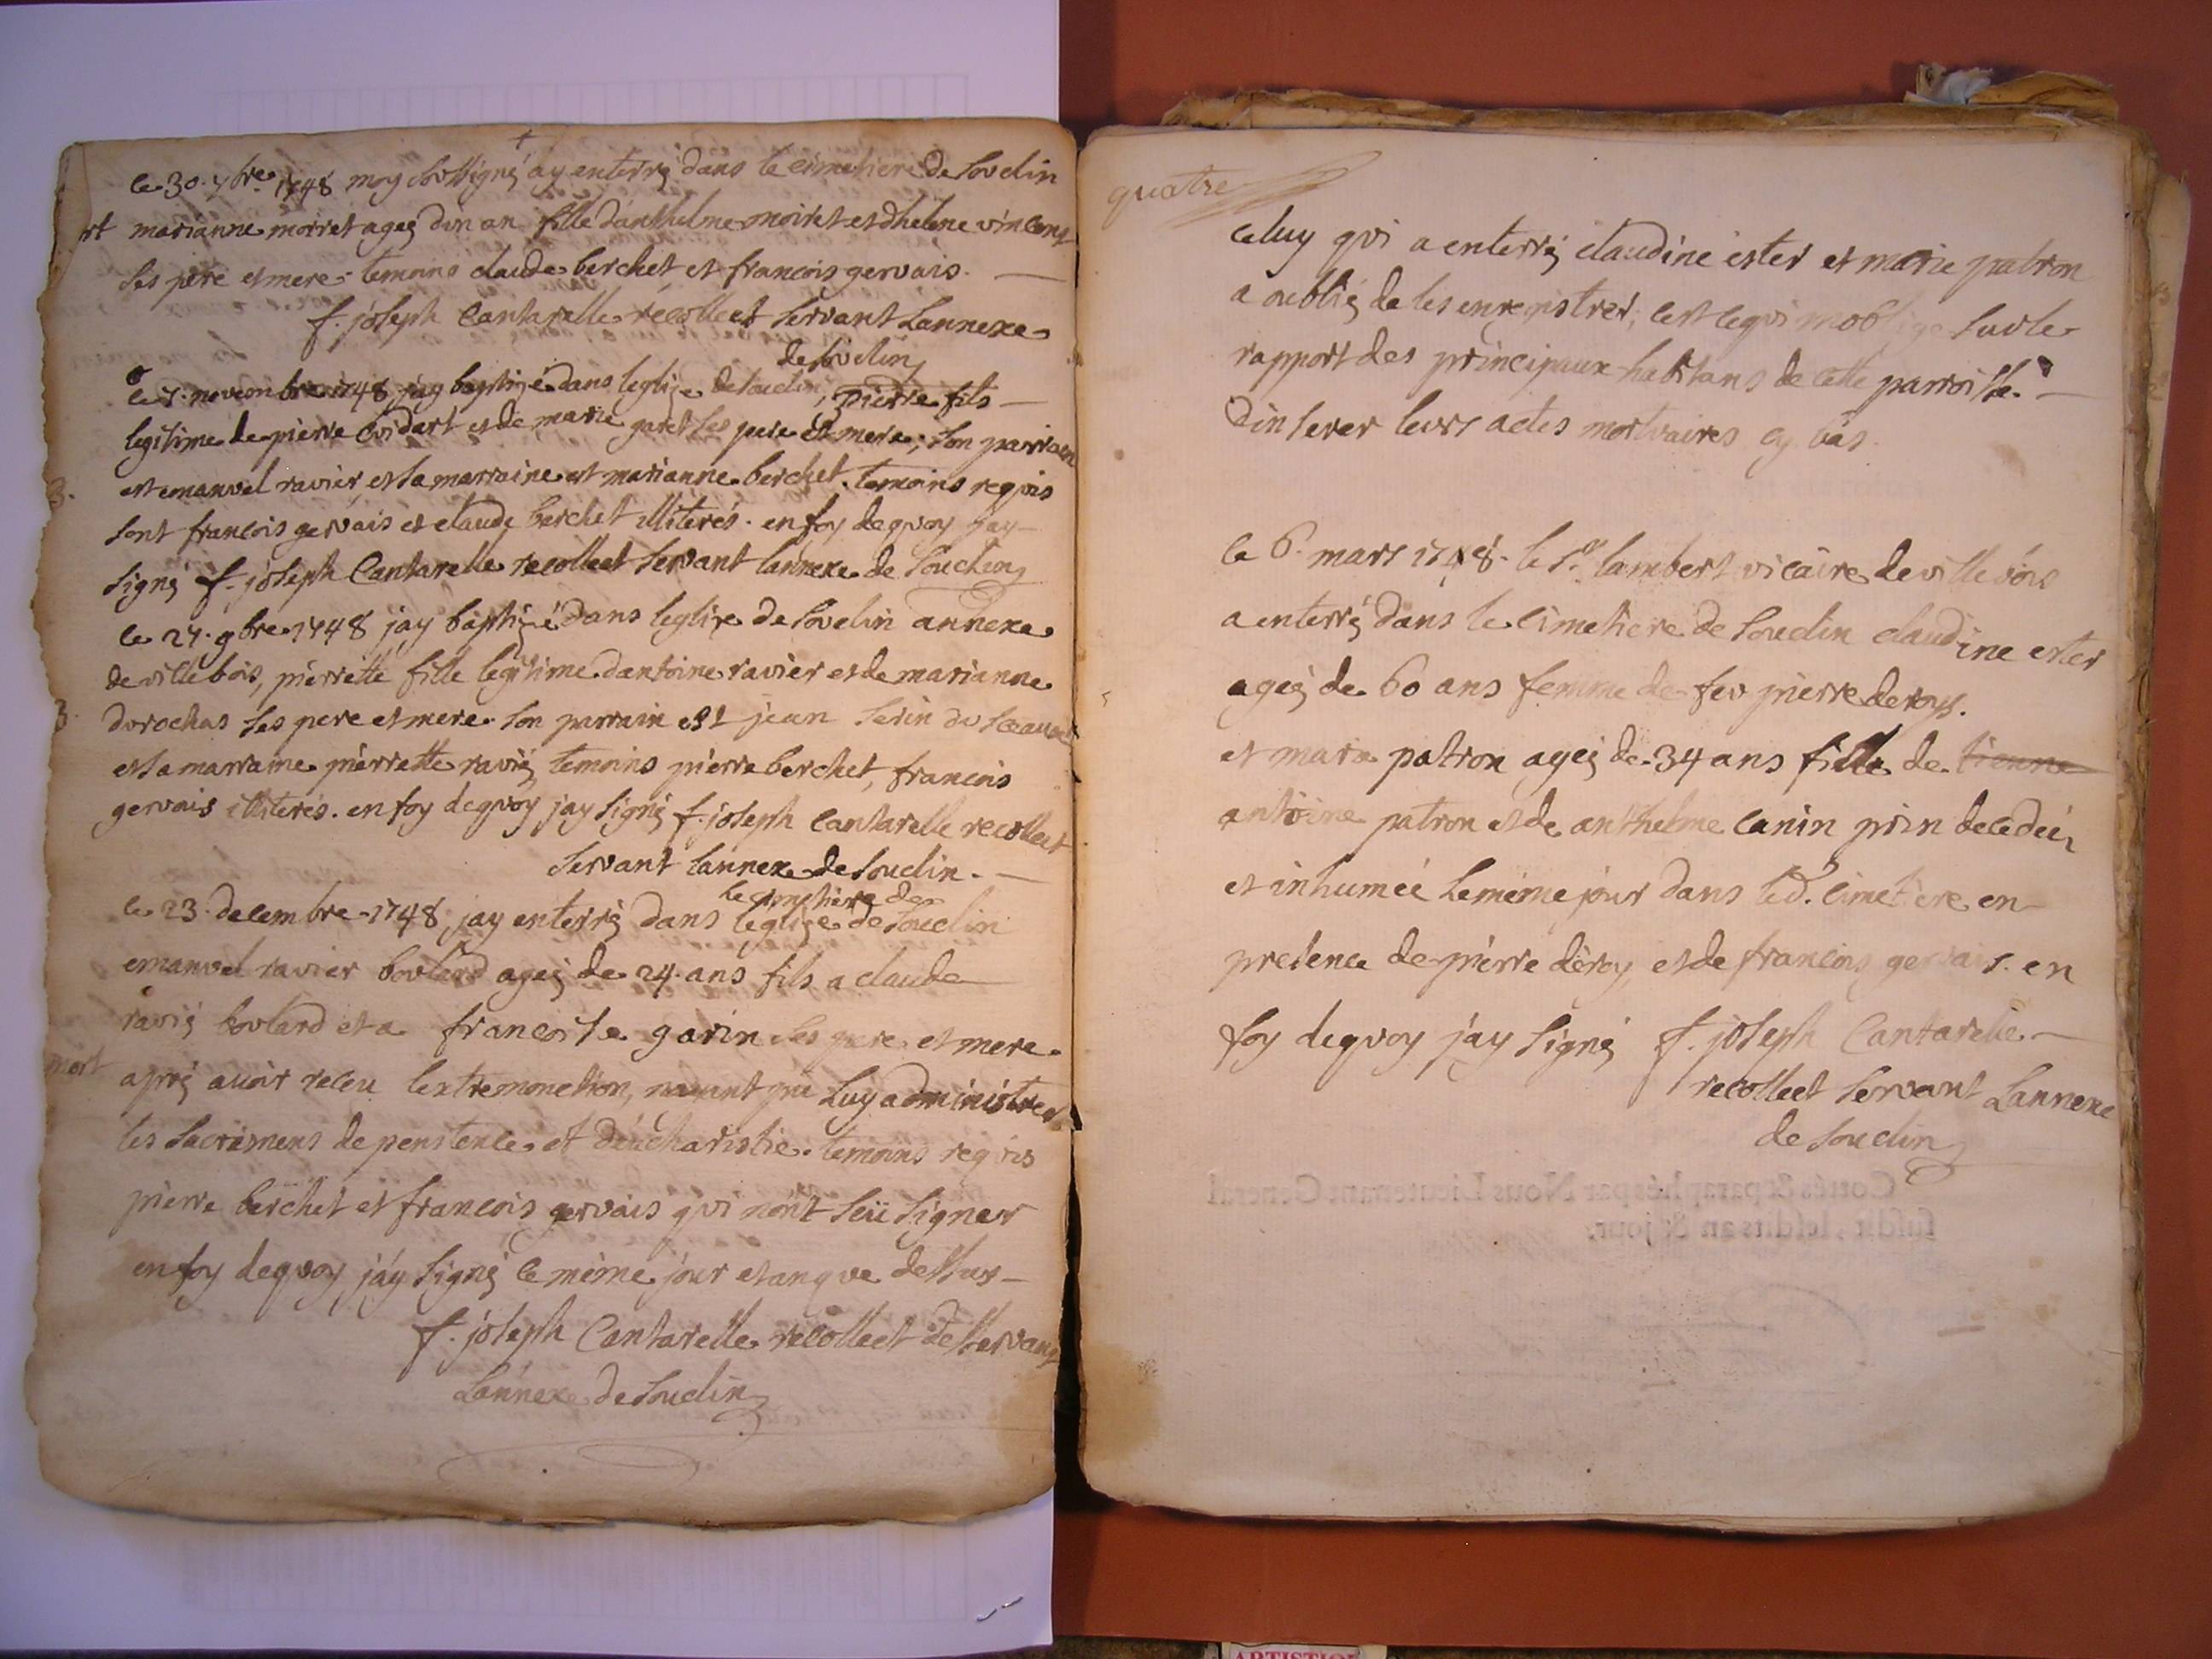 le 30. 7bre 1748 moy soussigné ay enterré dans le cimetiere de Souclin
rt marianne morret ageé dun an fille danthelme moiret et dhelene vincent
ses pere et mere temoins claude berchet et francois gervais.
f. joseph Cantarelle recollect servant Lannexe
de souclin
le 7. novembre 1748 jay baptizé dans leglize de souclin, pierre fils
legitime de pierre coidart et de marie garet ses pere et mere; son parrain
B. est emanuel ravier, et sa marraine est marianne berchet. temoins requis
sont francois gervais et claude berchet illiterés. en foy de quoy jay
signé f. joseph Cantarelle recollect servant lannexe de Souclin
le 27. 9bre 1748 jay baptizé dans leglize de souclin annexe
de villebois, pierrette fille legitime dantoine ravier et de marianne
B. durochas ses pere et mere. son parrain est jean serin du
et sa marraine pierrette ravié temoins pierre berchet, francois
gervais illiterés. en foy de quoy jay signé f. joseph Cantarelle recollect
servant lannexe de souclin.
le cimetiere de
le 23. decembre 1748 jay enterré dans leglize de souclin
emanuel ravier boulard ageé de 24. ans fils a claude
ravié boulard et a francoise garin ses pere et mere
mort apré avoir receu lextremonction, nayant pu luy administrer
les sacremens de penitence et deucharistie. temoins requis
pierre berchet et francois gervais qui nont seü signer
en foy dequoy jáy signé le même jour et an que dessus
f. joseph Cantarelle recollect desservant
Lannexe de souclin
quatre
celuy qui a enterré claudine ester et marie patron
a oublié de les enregistrer, cest cequi moblige sur le
rapport des principaux habitans de cette parroisse
dinserer leurs actes mortuaires cy bas.
le 6. mars 1748. le Sr. lambert vicaire de villebois
a enterré dans le cimetiere de souclin claudine ester
ageé de 60 ans femme de feu pierre deroys.
et marie patron ageé de 34 ans fille de tienne
antoine patron et de anthelme canin prin decedeé
et inhumeé le même jour dans led. cimetiere en
presence de pierre déroy, et de francois gervais. en
foy dequoy j'ay signé f. joseph Cantarelle
recollect servant Lannexe
de souclin
Cottés & paraphés par Nous Lieutenant General
susdit, lesdits an & jour;